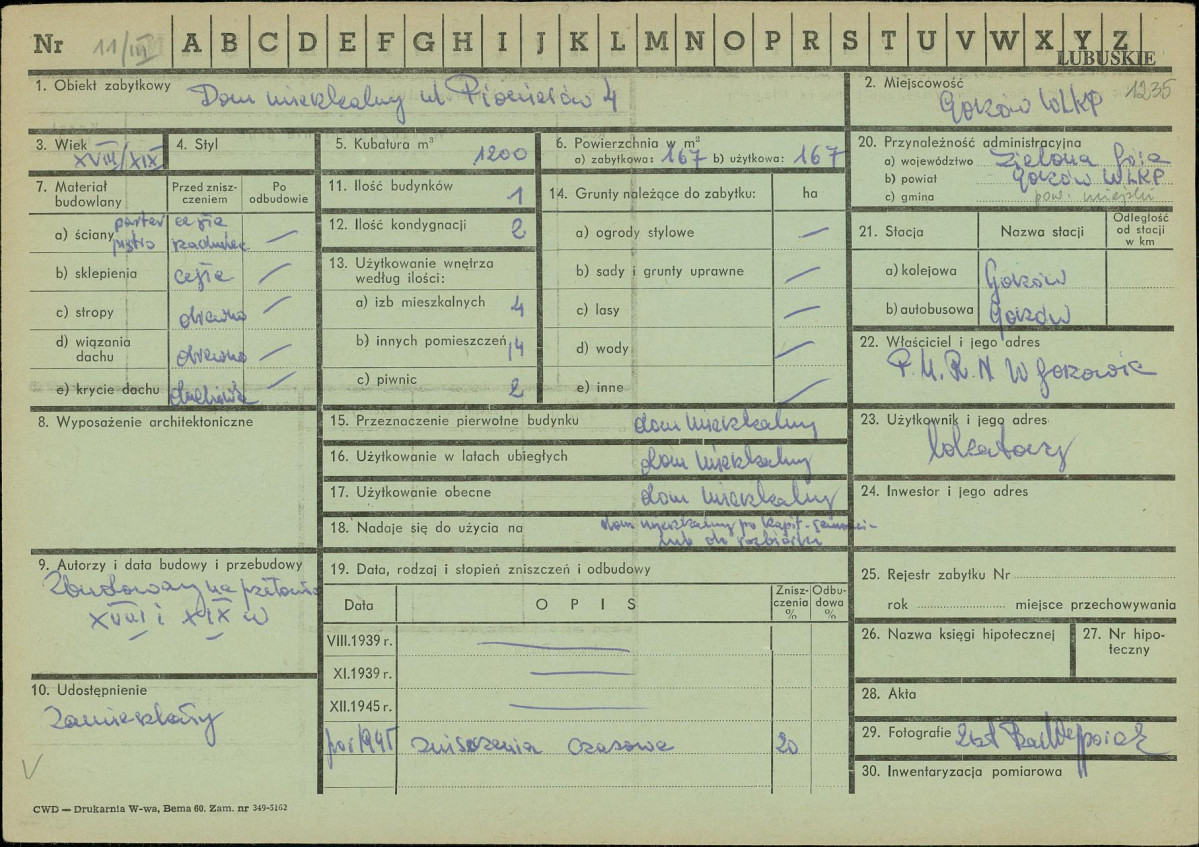 Nr 11/III A B C D E F G H I J K L M N O P R S T U V W X Y Z
LUBUSKIE
1. Obiekt zabytkowy Dom mieszkalny ul. Pionierów 4
2. Miejscowość 1235
Gorzów WLKP
3. Wiek XVIII/XIX
4. Styl
5. Kubatura m³ 1200
6. Powierzchnia w m²
a) zabytkowa: 167 b) użytkowa: 167
20. Przynależność administracyjna
a) województwo Zielona Góra
b) powiat Gorzów WLKP
c) gmina pow. miejski
7. Materiał budowlany
Przed znisz-
czeniem
Po
odbudowie
a) ściany parter cegła
piętro szachulec —
b) sklepienia cegła —
c) stropy drewno —
d) wiązania
dachu drewno —
e) krycie dachu dachówka —
11. Ilość budynków 1
12. Ilość kondygnacji 2
13. Użytkowanie wnętrza
według ilości:
a) izb mieszkalnych 4
b) innych pomieszczeń 14
c) piwnic 2
14. Grunty należące do zabytku: ha
a) ogrody stylowe —
b) sady i grunty uprawne —
c) lasy —
d) wody —
e) inne —
21. Stacja Nazwa stacji
Odległość
od stacji
w km
a) kolejowa Gorzów
b) autobusowa Gorzów
22. Właściciel i jego adres
P.M.R.N W Gorzowie
8. Wyposażenie architektoniczne
15. Przeznaczenie pierwotne budynku dom mieszkalny
16. Użytkowanie w latach ubiegłych dom mieszkalny
17. Użytkowanie obecne dom mieszkalny
18. Nadaje się do użycia na dom mieszkalny po kapit.
lub do rozbiórki
23. Użytkownik i jego adres
lokatorzy
24. Inwestor i jego adres
9. Autorzy i data budowy i przebudowy
Zbudowany na przełomie
XVIII i XIX w
19. Data, rodzaj i stopień zniszczeń i odbudowy
Data OPIS
Znisz-
czenia
%
Odbu-
dowa
%
VIII.1939 r. —
XI.1939 r. —
XII.1945 r. —
po 1945 zniszczenia czasowe 20
25. Rejestr zabytku Nr
rok miejsce przechowywania
26. Nazwa księgi hipotecznej
27. Nr hipo-
teczny
28. Akta
29. Fotografie
30. Inwentaryzacja pomiarowa
10. Udostępnienie
Zamieszkały
CWD — Drukarnia W-wa, Bema 60. Zam. nr 349-5162